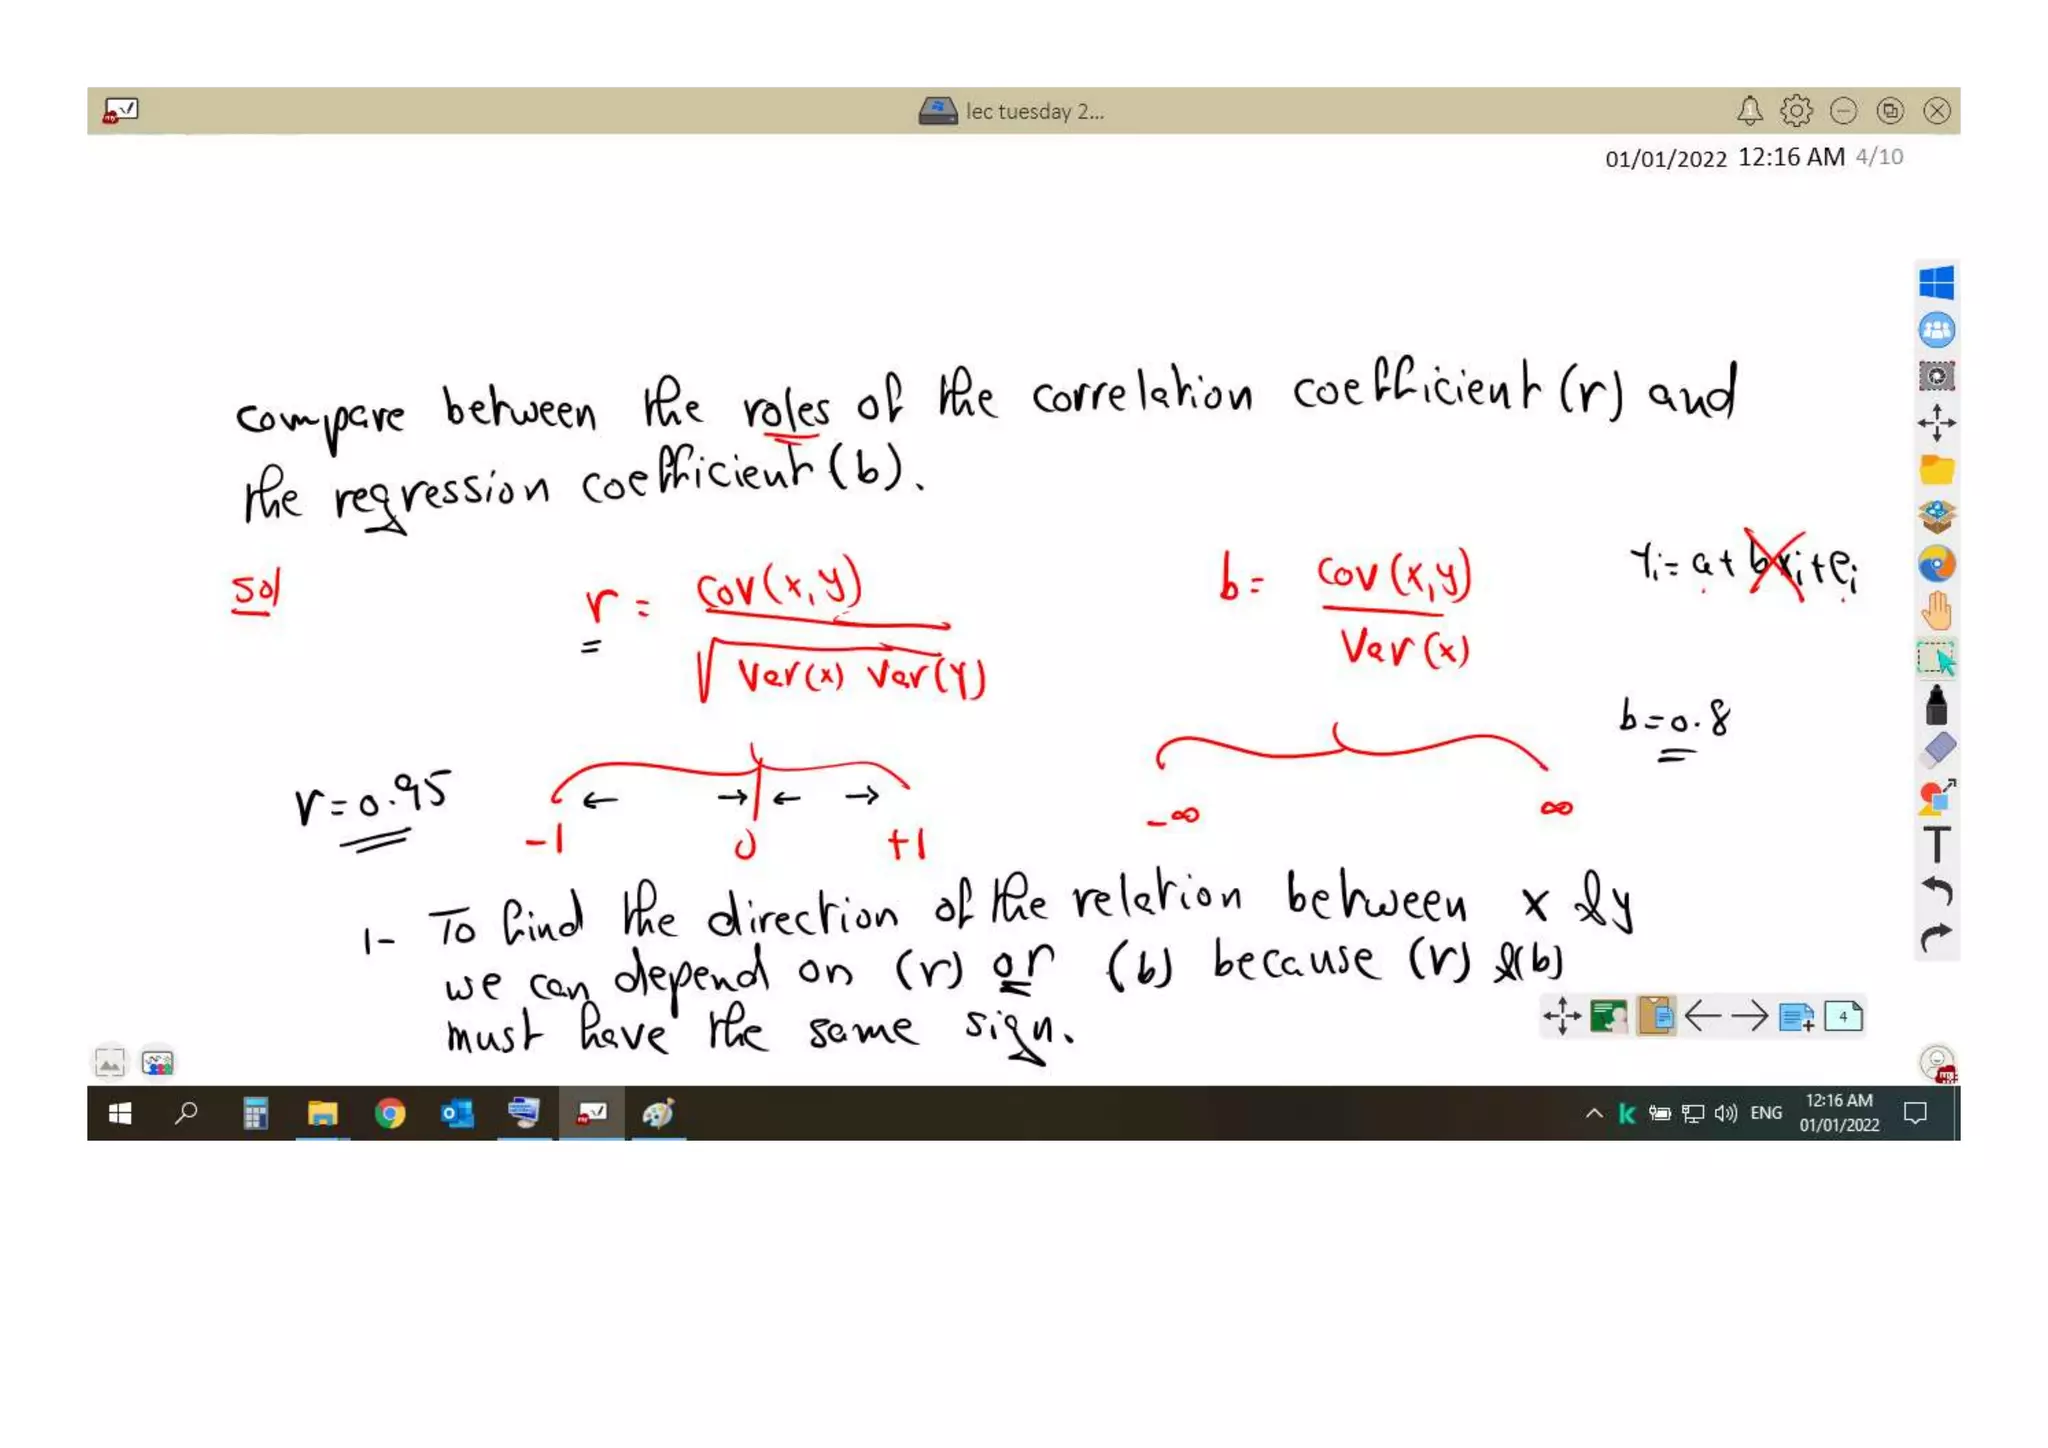 lec tuesday 2...
01/01/2022 12:16 AM 4/10
compare between the roles of the correlation coefficient (r) and
the regression coefficient (b).
Sol
r = Cov(x,y) / √Var(x) Var(y)
b = Cov(x,y) / Var(x)
Yi = a + bxi + ei
b = 0.8
r = 0.95
-1 0 +1
-∞ ∞
1- To find the direction of the relation between x & y
we can depend on (r) or (b) because (r) & (b)
must have the same sign.
T
4
ENG
12:16 AM
01/01/2022